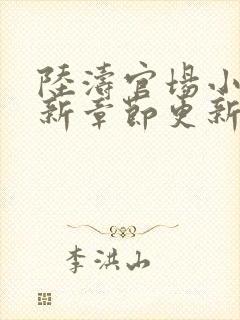 陸濤官場小
新章節更新
李洪山